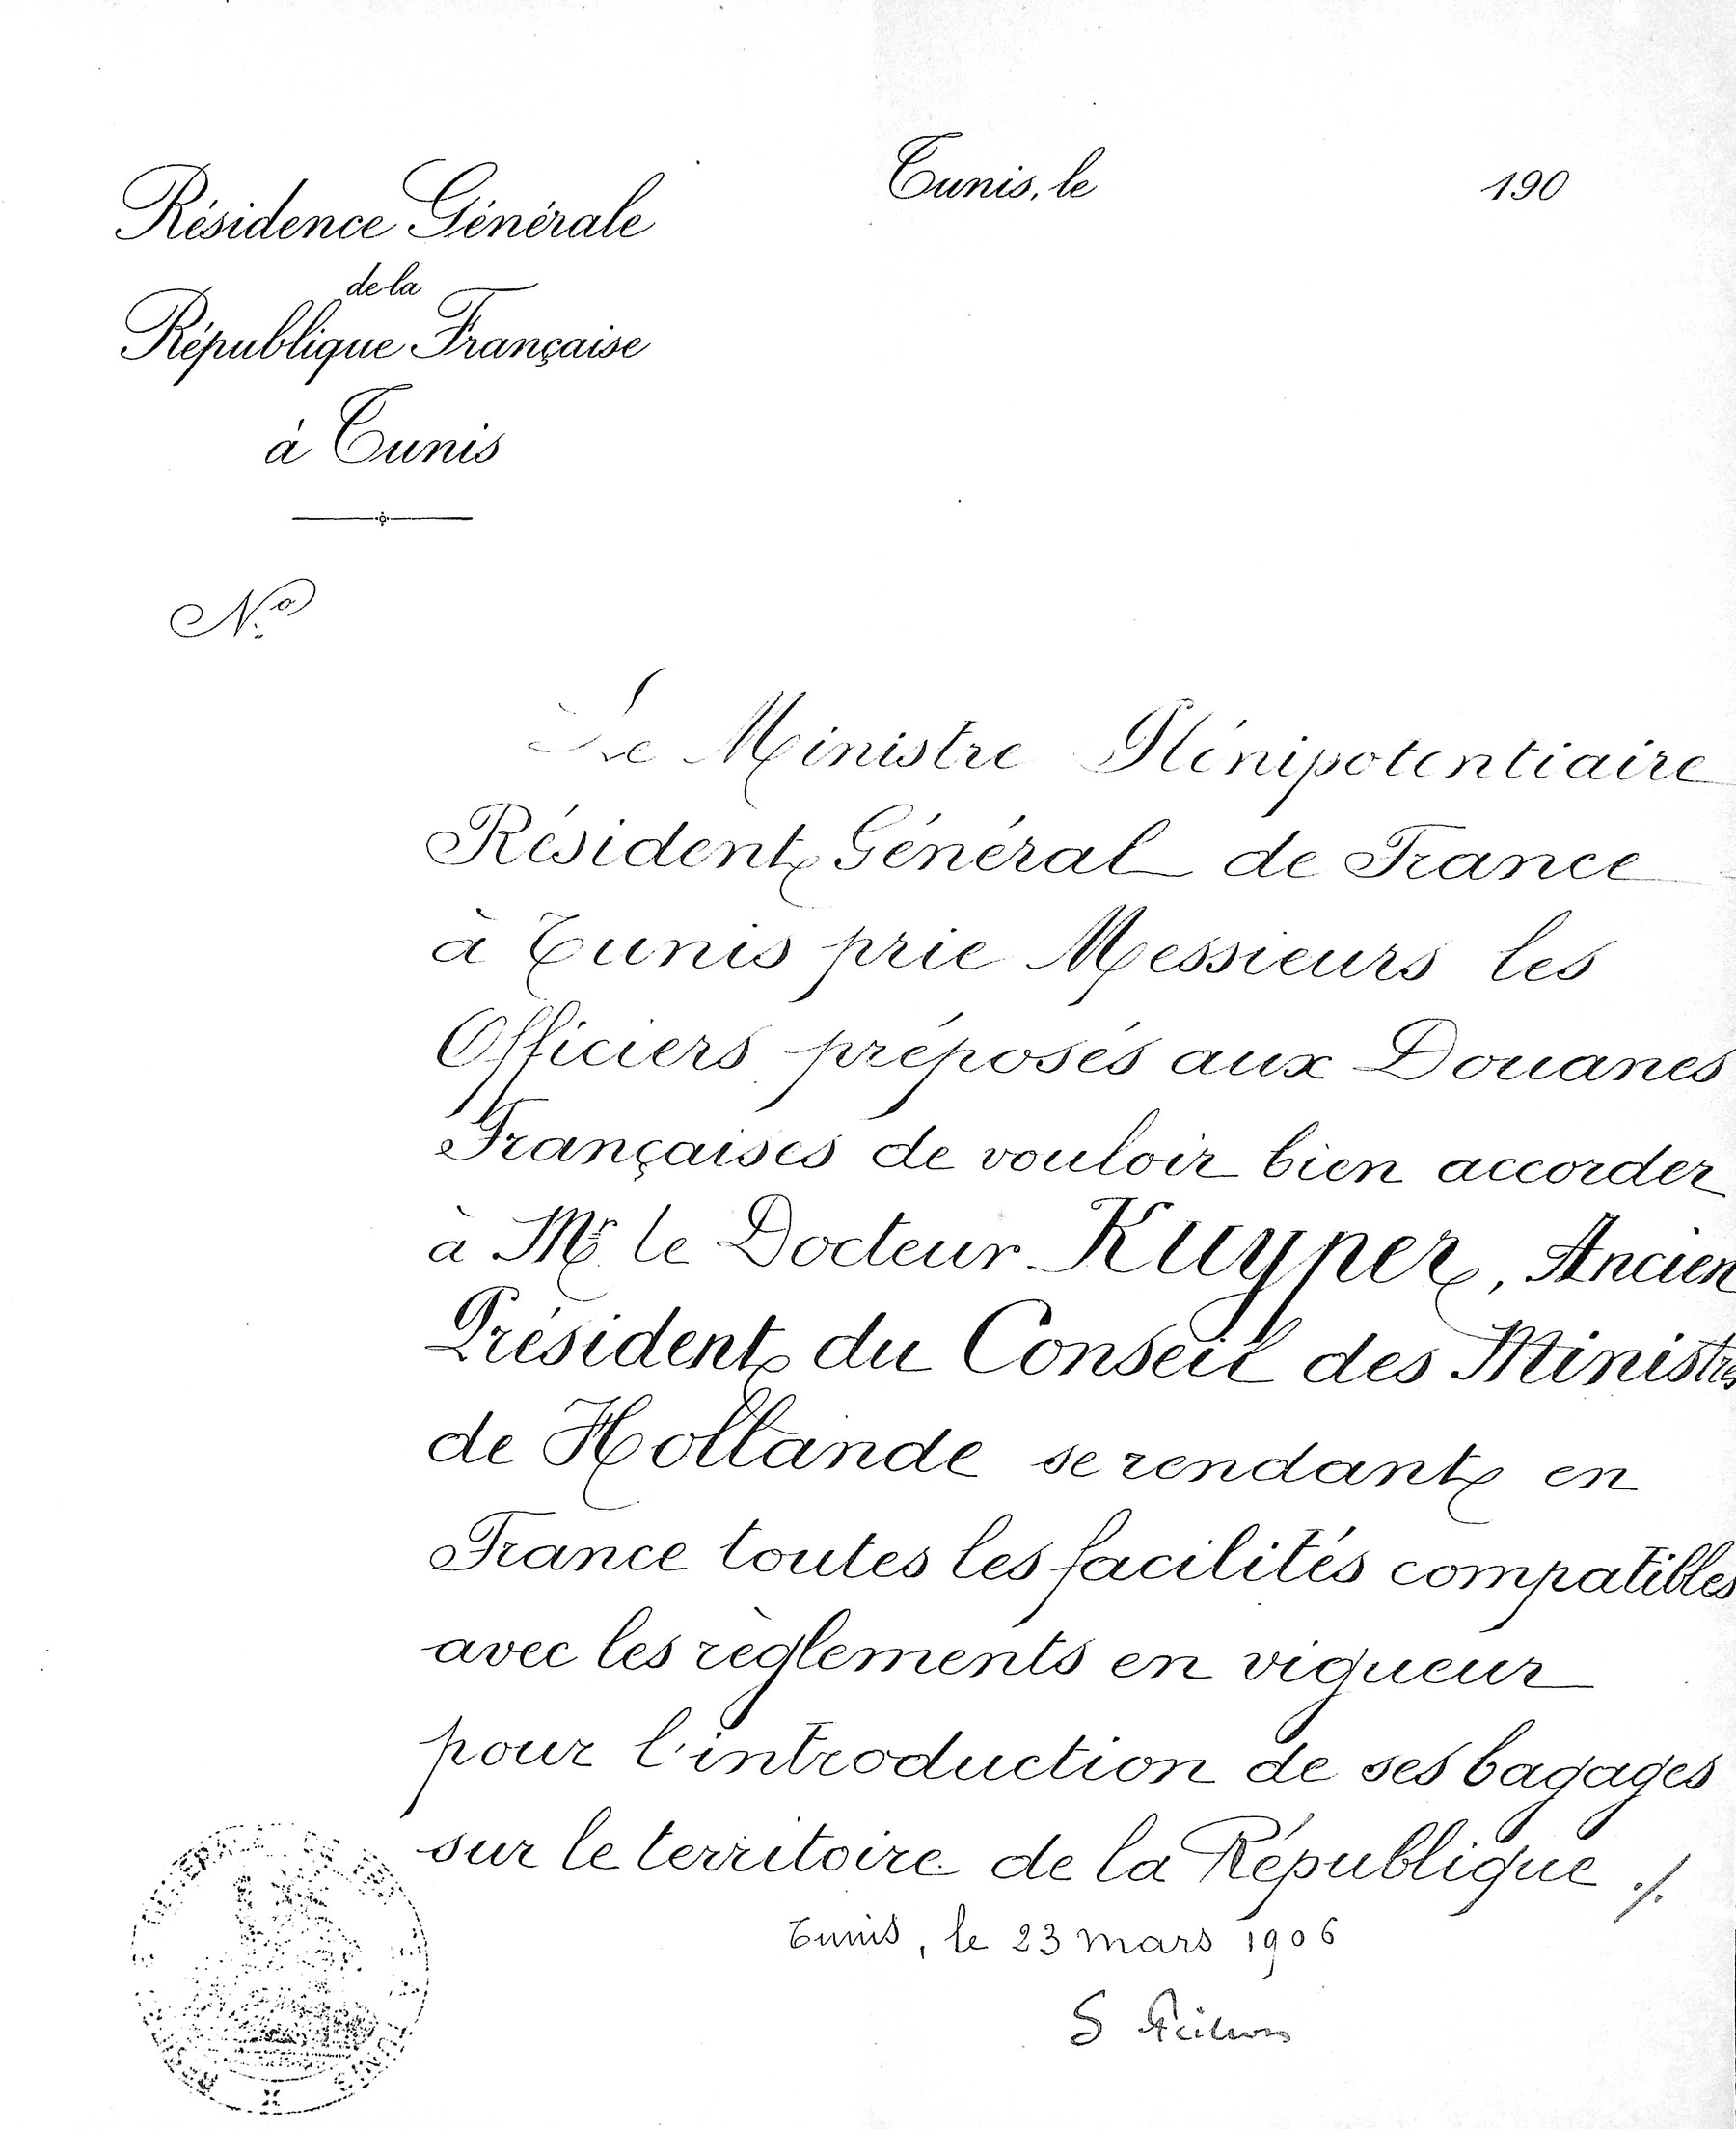 Résidence Générale
de la
République Française
à Tunis
Tunis, le 190
N.º
Le Ministre Plénipotentiaire
Résident Général de France
à Tunis prie Messieurs les
Officiers préposés aux Douanes
Françaises de vouloir bien accorder
à Mr le Docteur Kuyper, Ancien
Président du Conseil des Ministres
de Hollande se rendant en
France toutes les facilités compatibles
avec les règlements en vigueur
pour l'introduction de ses bagages
sur le territoire de la République ./.
Tunis, le 23 mars 1906
S